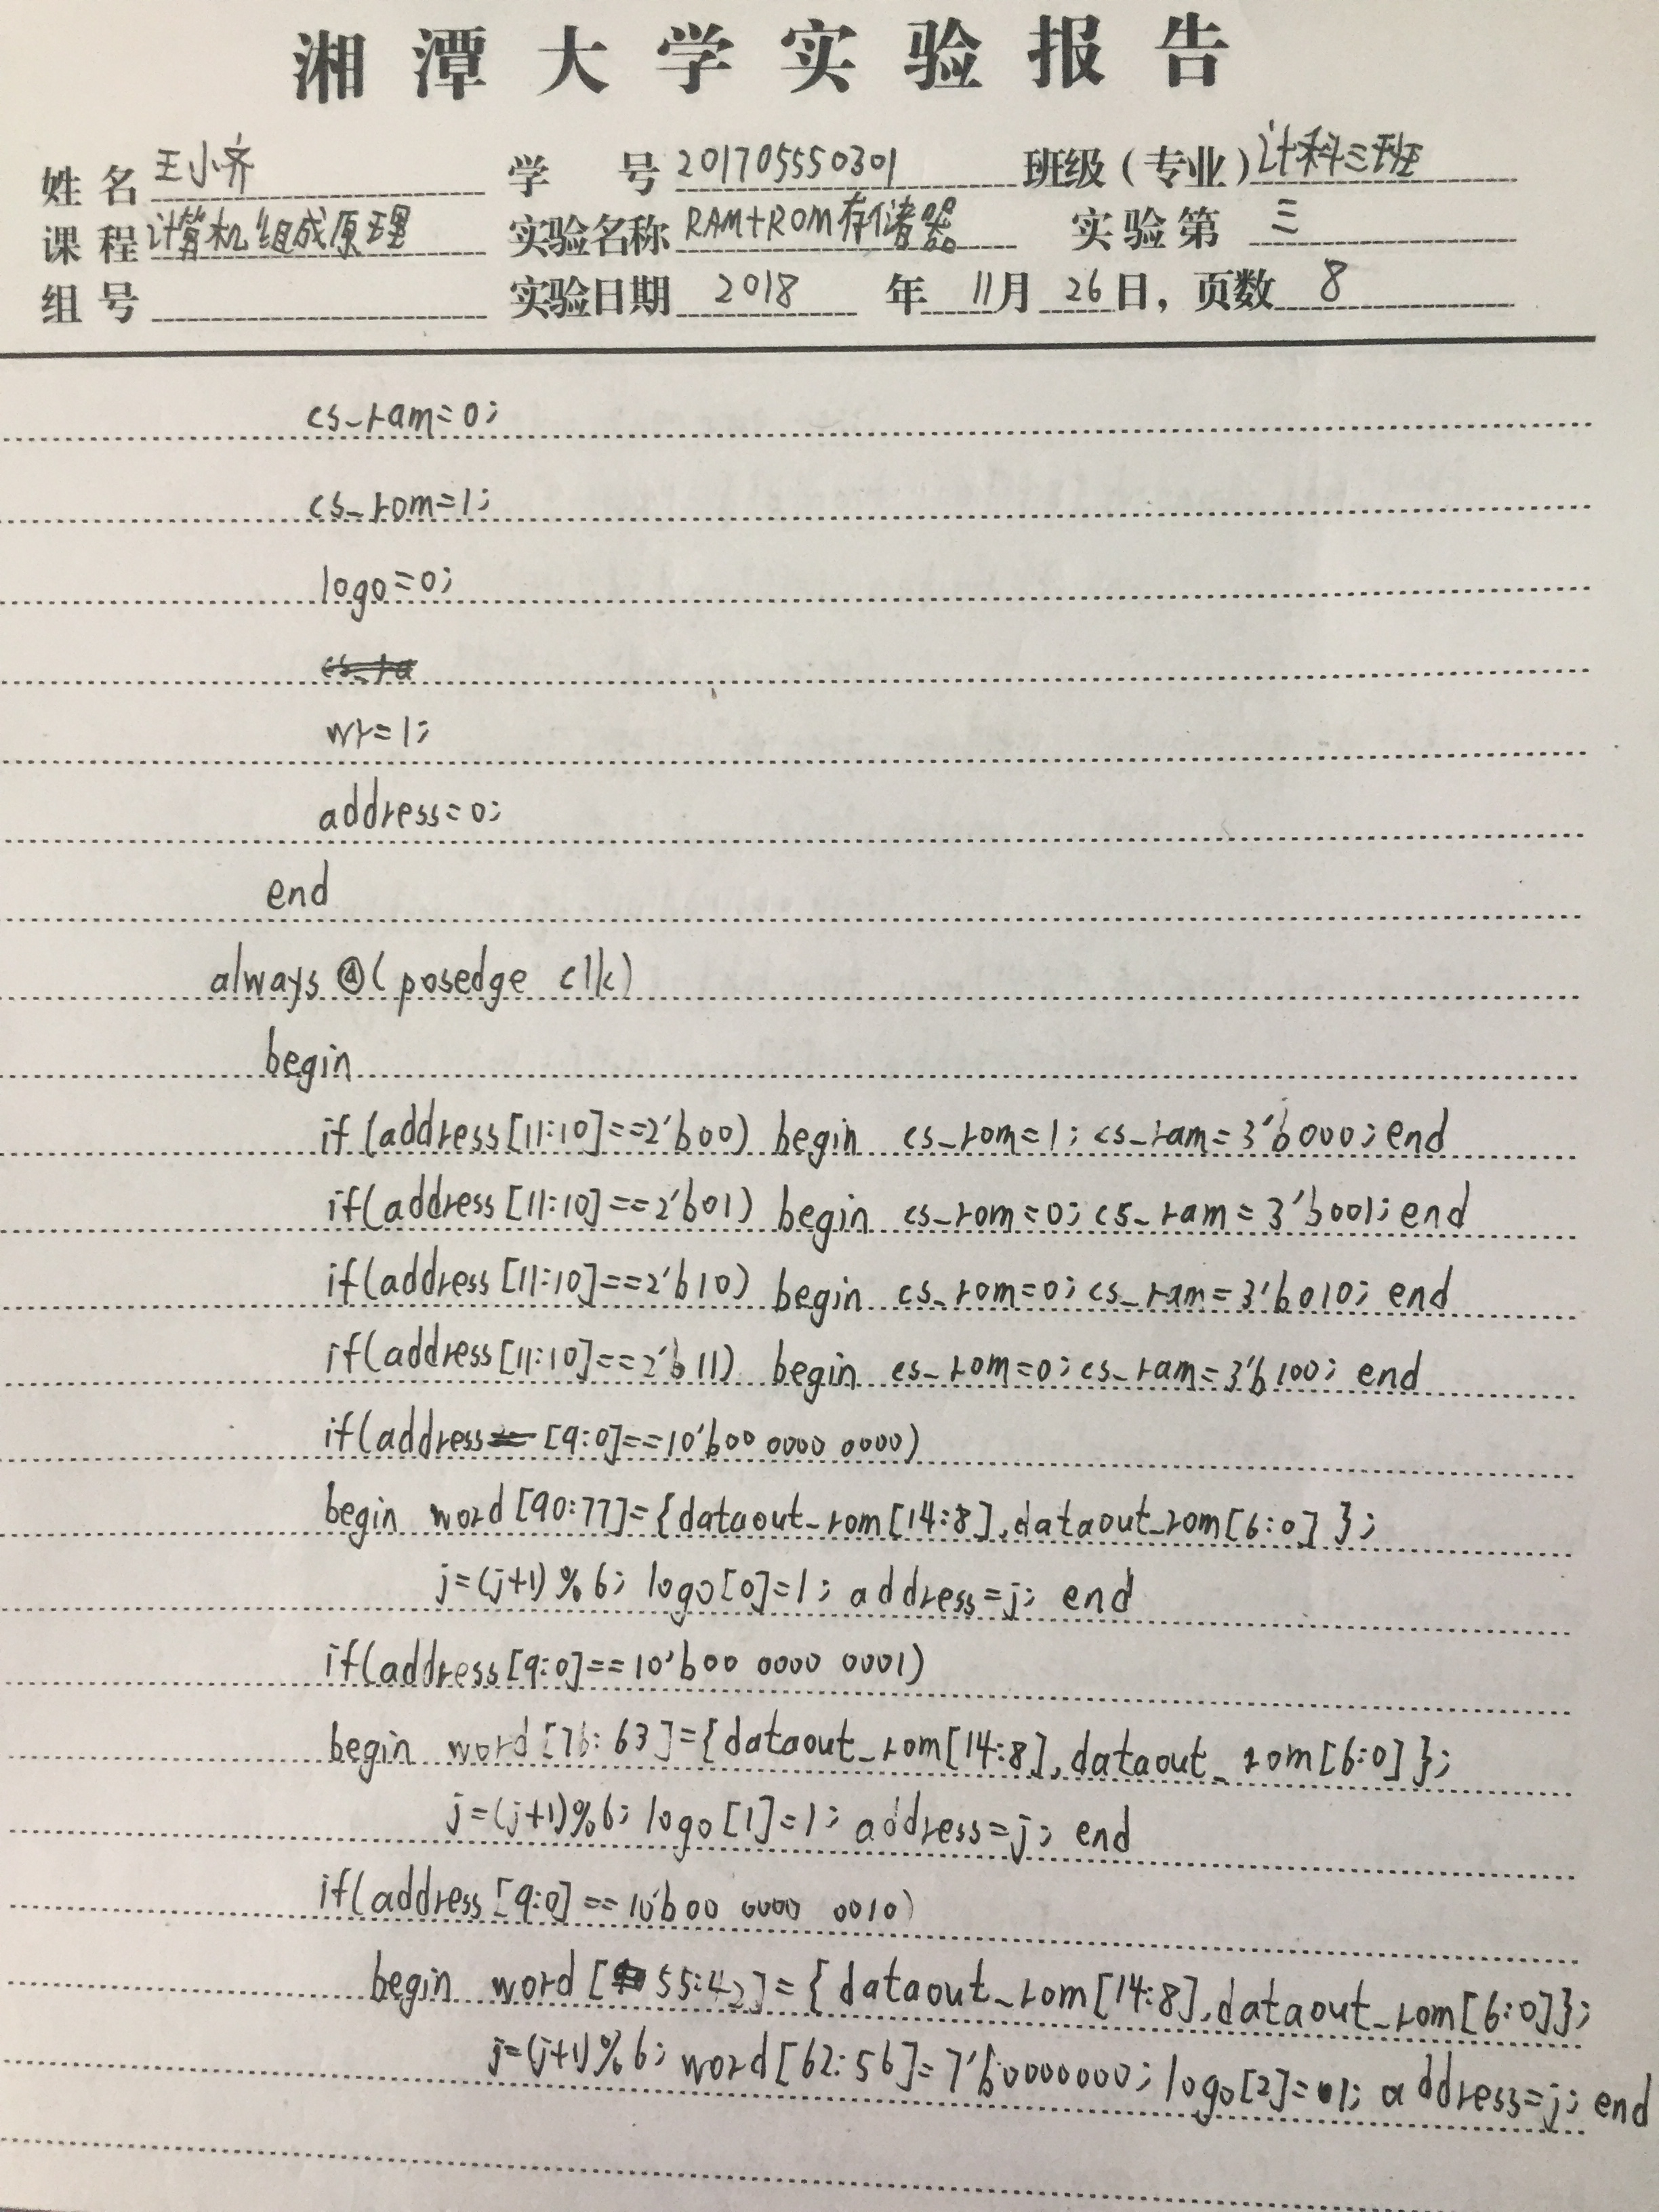 湘潭大学实验报告
姓名 王小齐 学号 201705550301 班级(专业) 计科三班
课程 计算机组成原理 实验名称 RAM+ROM存储器 实验第 三
组号 实验日期 2018 年 11月 26日, 页数 8
cs_ram=0;
cs_rom=1;
logo=0;
cs_ra
wr=1;
address=0;
end
always @(posedge clk)
begin
if(address[11:10]==2'b00) begin cs_rom=1; cs_ram=3'b000; end
if(address[11:10]==2'b01) begin cs_rom=0; cs_ram=3'b001; end
if(address[11:10]==2'b10) begin cs_rom=0; cs_ram=3'b010; end
if(address[11:10]==2'b11) begin cs_rom=0; cs_ram=3'b100; end
if(address[9:0]==10'b00 0000 0000)
begin word[90:77]={dataout_rom[14:8],dataout_rom[6:0]};
j=(j+1)%6; logo[0]=1; address=j; end
if(address[9:0]==10'b00 0000 0001)
begin word[76:63]={dataout_rom[14:8],dataout_rom[6:0]};
j=(j+1)%6; logo[1]=1; address=j; end
if(address[9:0]==10'b00 0000 0010)
begin word[55:42]={dataout_rom[14:8],dataout_rom[6:0]};
j=(j+1)%6; word[62:56]=7'b0000000; logo[2]=1; address=j; end